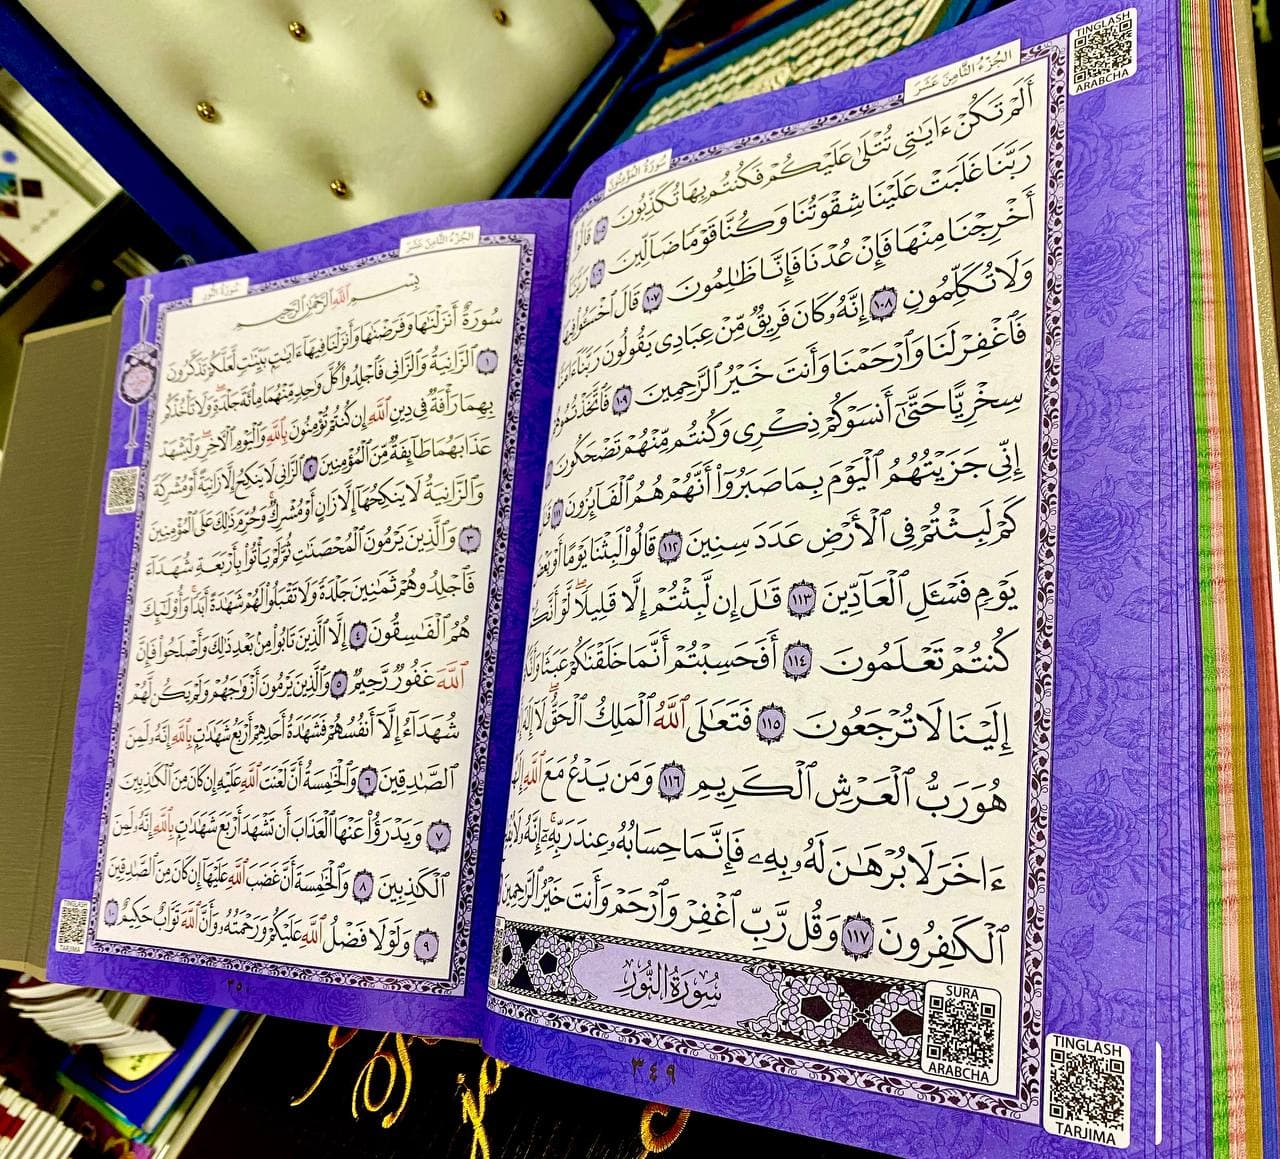 TINGLASH
ARABCHA
الجزء الثامن عشر
سورة المؤمنون
أَلَمْ تَكُنْ ءَايَٰتِى تُتْلَىٰ عَلَيْكُمْ فَكُنتُم بِهَا تُكَذِّبُونَ ١٠٥ قَالُوا۟
رَبَّنَا غَلَبَتْ عَلَيْنَا شِقْوَتُنَا وَكُنَّا قَوْمًا ضَآلِّينَ ١٠٦ رَبَّنَآ
أَخْرِجْنَا مِنْهَا فَإِنْ عُدْنَا فَإِنَّا ظَٰلِمُونَ ١٠٧ قَالَ ٱخْسَـُٔوا۟ فِيهَا
وَلَا تُكَلِّمُونِ ١٠٨ إِنَّهُۥ كَانَ فَرِيقٌ مِّنْ عِبَادِى يَقُولُونَ رَبَّنَآ ءَامَنَّا
فَٱغْفِرْ لَنَا وَٱرْحَمْنَا وَأَنتَ خَيْرُ ٱلرَّٰحِمِينَ ١٠٩ فَٱتَّخَذْتُمُوهُمْ
سِخْرِيًّا حَتَّىٰٓ أَنسَوْكُمْ ذِكْرِى وَكُنتُم مِّنْهُمْ تَضْحَكُونَ
إِنِّى جَزَيْتُهُمُ ٱلْيَوْمَ بِمَا صَبَرُوٓا۟ أَنَّهُمْ هُمُ ٱلْفَآئِزُونَ ١١١
كَمْ لَبِثْتُمْ فِى ٱلْأَرْضِ عَدَدَ سِنِينَ ١١٢ قَالُوا۟ لَبِثْنَا يَوْمًا أَوْ بَعْضَ
يَوْمٍ فَسْـَٔلِ ٱلْعَآدِّينَ ١١٣ قَٰلَ إِن لَّبِثْتُمْ إِلَّا قَلِيلًا لَّوْ أَنَّكُمْ
كُنتُمْ تَعْلَمُونَ ١١٤ أَفَحَسِبْتُمْ أَنَّمَا خَلَقْنَٰكُمْ عَبَثًا وَأَنَّكُمْ
إِلَيْنَا لَا تُرْجَعُونَ ١١٥ فَتَعَٰلَى ٱللَّهُ ٱلْمَلِكُ ٱلْحَقُّ لَآ إِلَٰهَ
هُوَ رَبُّ ٱلْعَرْشِ ٱلْكَرِيمِ ١١٦ وَمَن يَدْعُ مَعَ ٱللَّهِ إِلَٰهًا
ءَاخَرَ لَا بُرْهَٰنَ لَهُۥ بِهِۦ فَإِنَّمَا حِسَابُهُۥ عِندَ رَبِّهِۦٓ إِنَّهُۥ لَا يُفْلِحُ
ٱلْكَٰفِرُونَ ١١٧ وَقُل رَّبِّ ٱغْفِرْ وَٱرْحَمْ وَأَنتَ خَيْرُ ٱلرَّٰحِمِينَ
سُورَةُ النُّورِ
SURA
ARABCHA
TINGLASH
TARJIMA
٣٤٩
الجزء الثامن عشر
سورة النور
بِسْمِ ٱللَّهِ ٱلرَّحْمَٰنِ ٱلرَّحِيمِ
سُورَةٌ أَنزَلْنَٰهَا وَفَرَضْنَٰهَا وَأَنزَلْنَا فِيهَآ ءَايَٰتٍۭ بَيِّنَٰتٍ لَّعَلَّكُمْ تَذَكَّرُونَ
١ ٱلزَّانِيَةُ وَٱلزَّانِى فَٱجْلِدُوا۟ كُلَّ وَٰحِدٍ مِّنْهُمَا مِا۟ئَةَ جَلْدَةٍ وَلَا تَأْخُذْكُم
بِهِمَا رَأْفَةٌ فِى دِينِ ٱللَّهِ إِن كُنتُمْ تُؤْمِنُونَ بِٱللَّهِ وَٱلْيَوْمِ ٱلْءَاخِرِ وَلْيَشْهَدْ
عَذَابَهُمَا طَآئِفَةٌ مِّنَ ٱلْمُؤْمِنِينَ ٢ ٱلزَّانِى لَا يَنكِحُ إِلَّا زَانِيَةً أَوْ مُشْرِكَةً
وَٱلزَّانِيَةُ لَا يَنكِحُهَآ إِلَّا زَانٍ أَوْ مُشْرِكٌ وَحُرِّمَ ذَٰلِكَ عَلَى ٱلْمُؤْمِنِينَ
٣ وَٱلَّذِينَ يَرْمُونَ ٱلْمُحْصَنَٰتِ ثُمَّ لَمْ يَأْتُوا۟ بِأَرْبَعَةِ شُهَدَآءَ
فَٱجْلِدُوهُمْ ثَمَٰنِينَ جَلْدَةً وَلَا تَقْبَلُوا۟ لَهُمْ شَهَٰدَةً أَبَدًا وَأُو۟لَٰٓئِكَ
هُمُ ٱلْفَٰسِقُونَ ٤ إِلَّا ٱلَّذِينَ تَابُوا۟ مِنۢ بَعْدِ ذَٰلِكَ وَأَصْلَحُوا۟ فَإِنَّ
ٱللَّهَ غَفُورٌ رَّحِيمٌ ٥ وَٱلَّذِينَ يَرْمُونَ أَزْوَٰجَهُمْ وَلَمْ يَكُن لَّهُمْ
شُهَدَآءُ إِلَّآ أَنفُسُهُمْ فَشَهَٰدَةُ أَحَدِهِمْ أَرْبَعُ شَهَٰدَٰتٍۭ بِٱللَّهِ إِنَّهُۥ لَمِنَ
ٱلصَّٰدِقِينَ ٦ وَٱلْخَٰمِسَةُ أَنَّ لَعْنَتَ ٱللَّهِ عَلَيْهِ إِن كَانَ مِنَ ٱلْكَٰذِبِينَ
٧ وَيَدْرَؤُا۟ عَنْهَا ٱلْعَذَابَ أَن تَشْهَدَ أَرْبَعَ شَهَٰدَٰتٍۭ بِٱللَّهِ إِنَّهُۥ لَمِنَ
ٱلْكَٰذِبِينَ ٨ وَٱلْخَٰمِسَةَ أَنَّ غَضَبَ ٱللَّهِ عَلَيْهَآ إِن كَانَ مِنَ ٱلصَّٰدِقِينَ
٩ وَلَوْلَا فَضْلُ ٱللَّهِ عَلَيْكُمْ وَرَحْمَتُهُۥ وَأَنَّ ٱللَّهَ تَوَّابٌ حَكِيمٌ ١٠
TINGLASH
ARABCHA
TARJIMA
٣٥٠